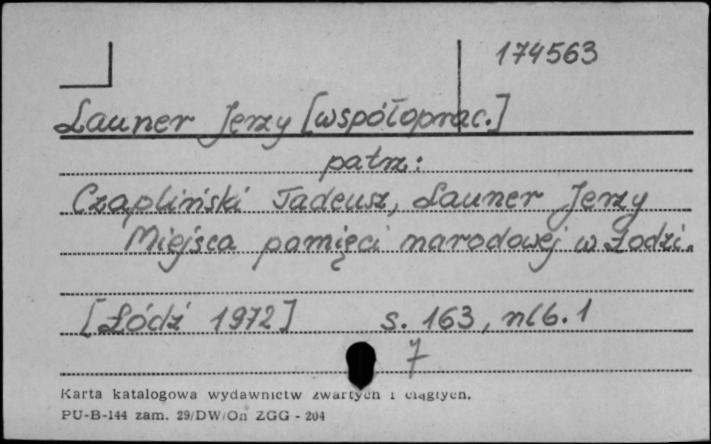 174563
Launer Jerzy [współoprac.]
patrz:
Czapliński Tadeusz, Launer Jerzy
Miejsca pamięci narodowej w Łodzi.
[Łódź 1972] s. 163, nlb. 1
7
Karta katalogowa wydawnictw zwartych i ciągłych.
PU-B-144 zam. 29/DW/On ZGG - 204